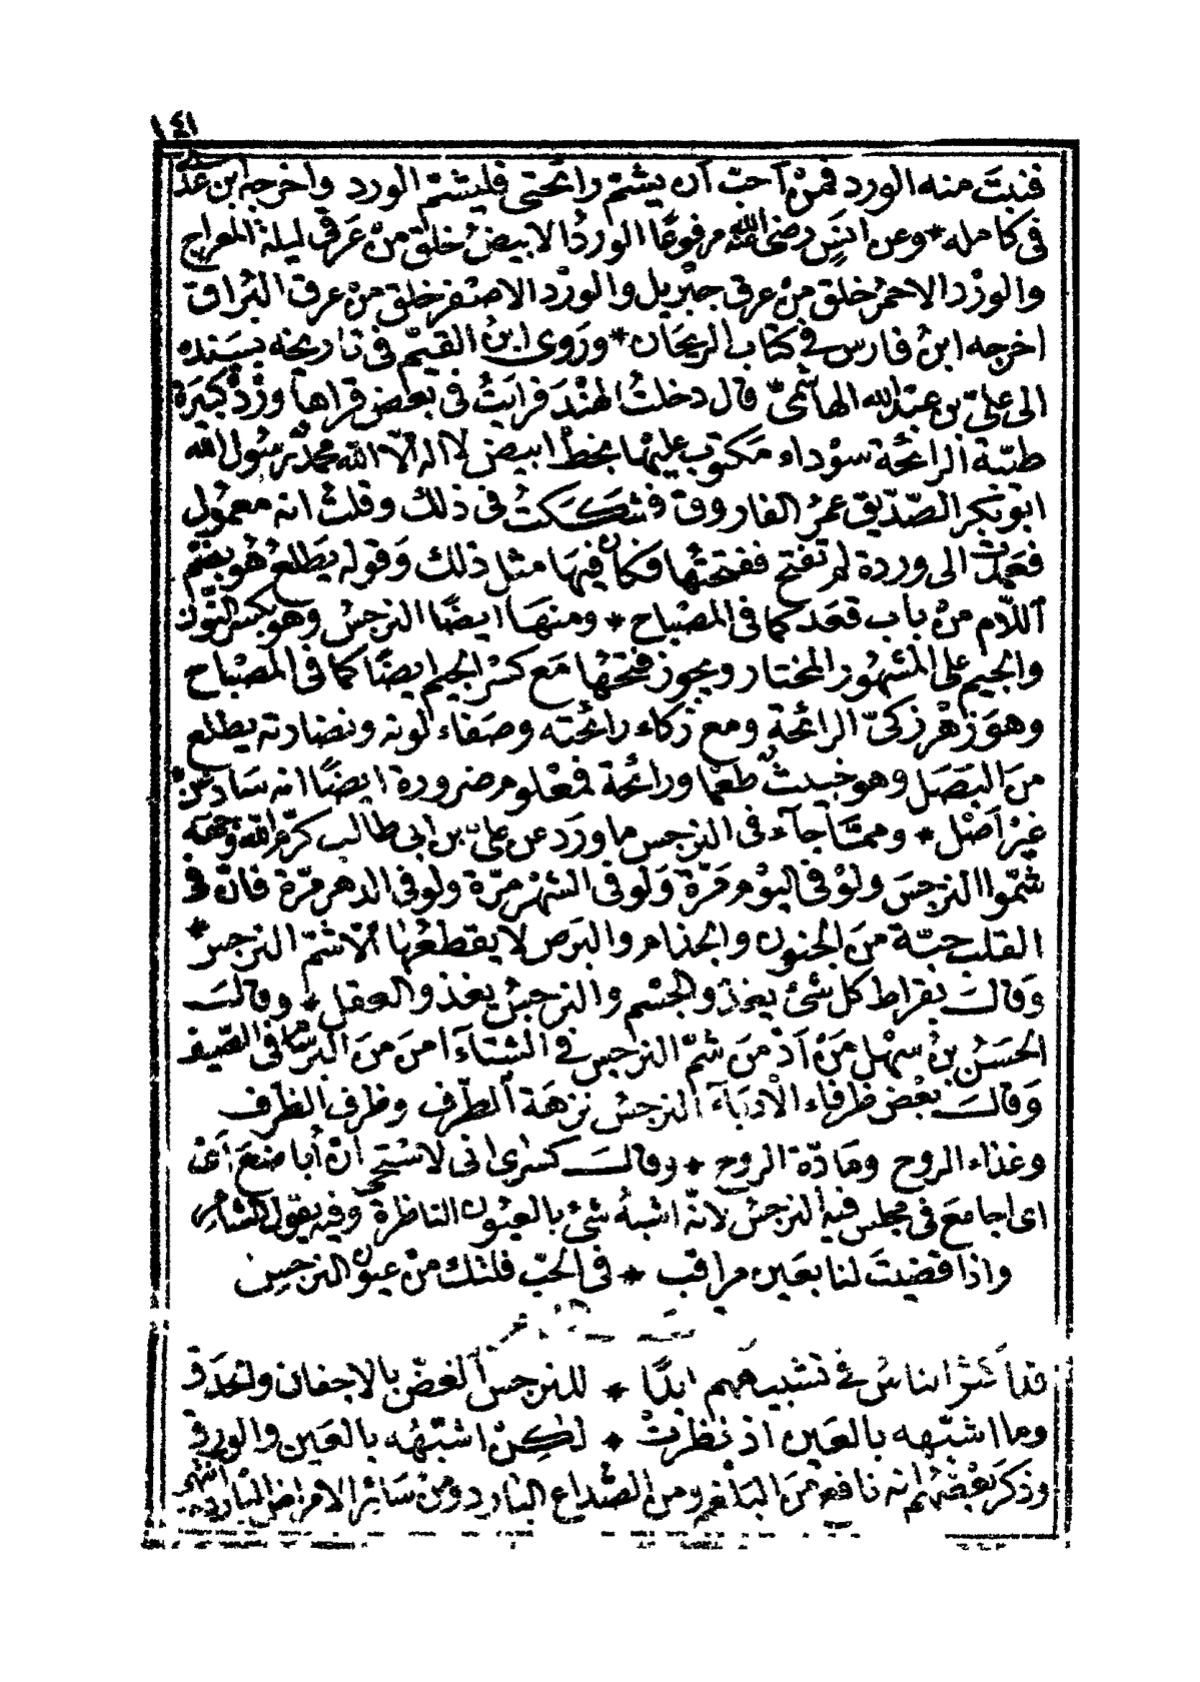 ١٤١
فنبتَ منه الورد فمنْ آحبّ آن يشمّ رائحتى فليشمّ الورد واخرجه ابن عدىّ
فى كامله * وعن انسٍ رضى الله عنه مرفوعًا الوردُ الابيضُ خلق منْ عَرَقى ليلة المعراج
والورْد الاحمرُ خلق منْ عرق جبْريل والورْد الاصْفرُ خلق منْ عرق البُراق
اخرجه ابنُ فارس فى كتاب الريحَان * ورَوى ابنُ القيّم فى تاريخه بسَنده
الى علىّ بن عبْد الله الهاشمىّ قال دخلتُ الهنْدَ فرايْتُ فى بعْض قراها ورْدةً كبيَرةً
طيّبة الرائحة سوْداء مَكتوب عليْها بخطّ ابيض لا اله الّا الله محمّدٌ رسُول الله
ابو بَكر الصّدّيق عمرُ الفاروق فشكَكتُ فى ذلك وقلتُ انه معمُول
فعَمدْت الى وردة لم تفتح ففتحتُها فكان فيهَا مثل ذلك وَقوله يَطلعُ هُو بضمّ
اللّام منْ باب قعَد كما فى المصْباح * ومنهَا ايضًا النرجسُ وهو بكسْر النّون
والجيم على المشهُور المختار ويجوز فتحُها مَع كسْر الجيم ايضًا كما فى المصْباح
وهوَ زهْر زكىّ الرائحة ومع ذكاء رائحَته وصَفاء لونه ونضَارته يطلع
منَ البَصَل وهو خبيثٌ طعْمًا ورائحَة فمعْلوم ضرورة ايضًا انه سَادَ منْ
غيْر آصْل * وممّا جآء فى النرجس ما ورَد عن علىّ بن ابى طالب كرّم الله وجْهه
شمّوا النرجسَ ولوْ فى اليوْم مَرّة وَلو فى الشهْر مرّة ولو فى الدهر مرّة فانّ فى
القلب حبّة منَ الجنون والجذام والبَرَص لا يقطعُها الّا شمّ النرجس *
وَقالَ بقراط كل شئ يغذو الجسْم والنرجسُ يغذو العقل * وقالَ
الحَسَنُ بنُ سهْل مَنْ آدْمنَ شمّ النرجس فى الشتآء آمن منَ البرسَام فى الصّيف
وَقالَ بعْض ظرفاء الاْدبآء النرجسُ نزهَة الطّرف وظرف الظرف
وغذاء الروح ومَادّة الروح * وقالَ كسْرى انى لاسْتحى انْ أباضعَ آىْ
اى اجامعَ فى مجلس فيه النرجسُ لانّه اشبهُ شئ بالعيُون الناظرة وفيه يقول الشاعر
واذا قضيتَ لنا بعَين مراقب * فى الحبّ فلتك منْ عيون النرجس
قد آكثرَ الناسُ فى تشبيههم ابدًا * للنرجس الغضّ بالاجفان والحَدق
وما اشبّهه بالعَين اذ نظرتْ * لكنْ اشبّهُه بالعَين والورق
وذكرَ بعْضُهُم انه نافع منَ البَلغم ومن الصُداع البَارد ومنْ سَائر الامْراض البَاردة